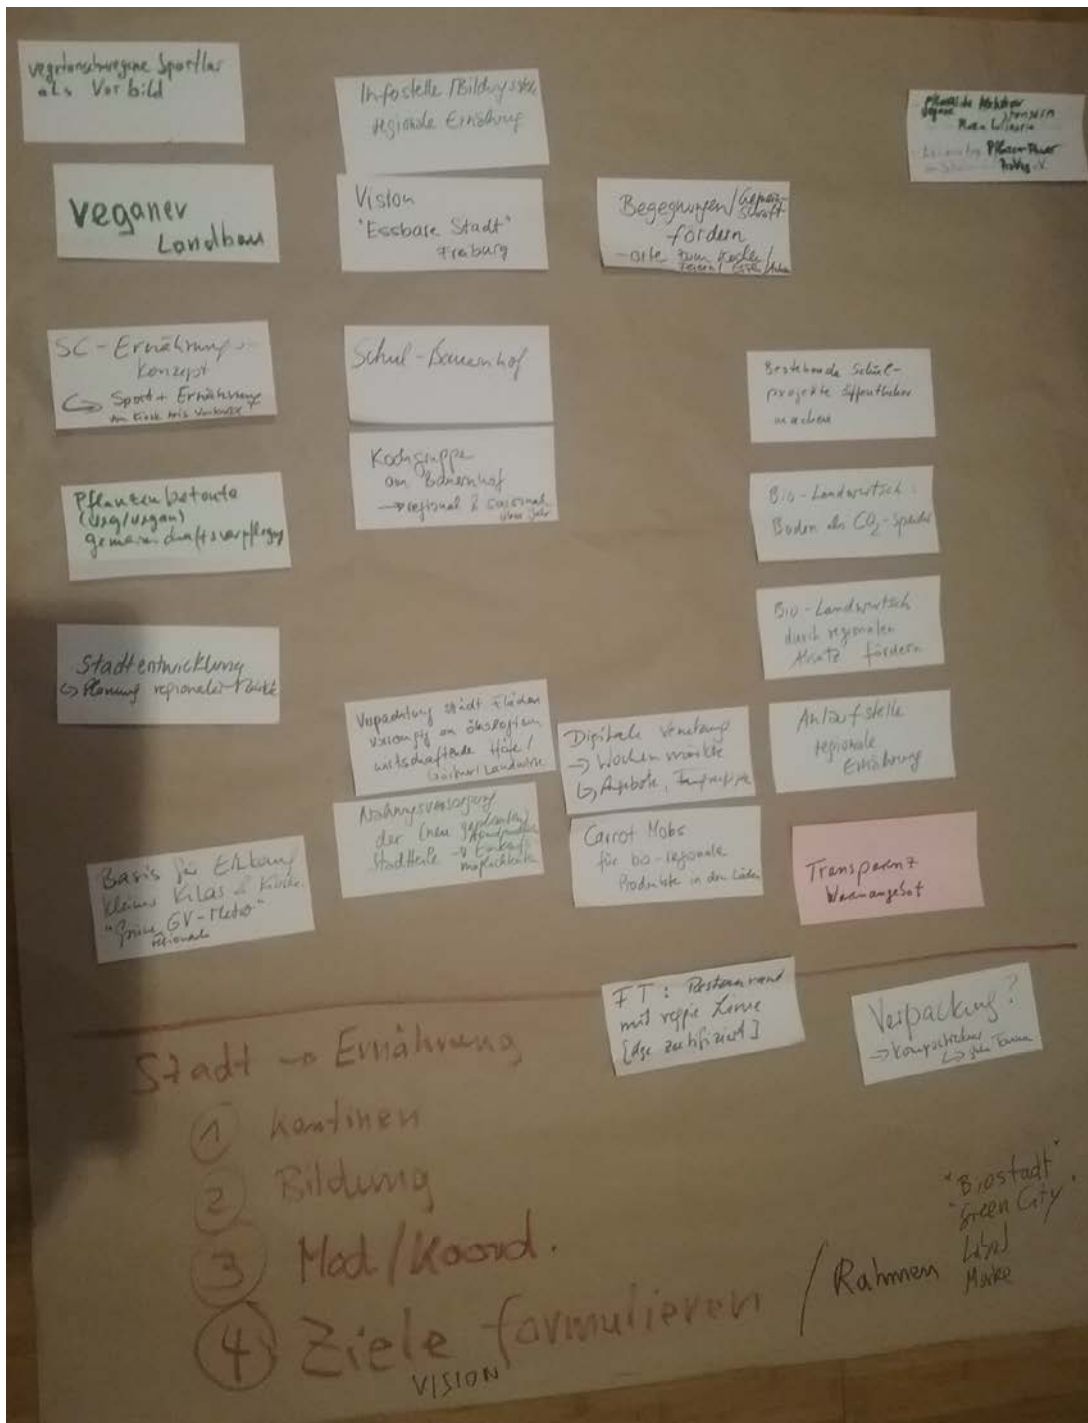 vegetarische/vegane Sportler
als Vorbild
Veganer
Landbau
SC-Ernährungs-
Konzept
↳ Sport + Ernährung
Pflanzenbetonte
(veg/vegan)
gemeinschaftsverpflegung
Stadtentwicklung
↳ Planung regionaler Märkte
Basis für
kleiner Kitas &
"Grüne GV-Metro"
regionale
Infostelle/Bildungs
regionale Ernährung
Vision
"Essbare Stadt"
Freiburg
Schul-Bauernhof
Kochgruppe
am Bauernhof
→ regional & saisonal
übers Jahr
Verpachtung städt Flächen
vorrangig an ökologisch
wirtschaftende Höfe/
Landwirte
Nahrungsversorgung
der (neu geplanten)
Stadtteile → Einkaufs
möglichkeiten
Begegnungen/Gemein-
schaft
fördern
- Orte zum Kochen/
Feiern/
Digitale Vernetzung
→ Wochenmärkte
↳ Angebote,
Carrot Mobs
für bio-regionale
Produkte in den Läden
FT: Restaurand
mit
[dge zertifiziert]
vegane
Pflanzen-Power
Bestehende Schul-
projekte öffentlicher
machen
Bio-Landwirtsch:
Boden als CO₂-Speicher
Bio-Landwirtsch
durch regionalen
Absatz fördern
Anlaufstelle
regionale
Ernährung
Transparenz
Warenangebot
Verpackung?
→ kompostierbar
Stadt → Ernährung
① Kantinen
② Bildung
③ Mod/Koord.
④ Ziele formulieren / Rahmen
VISION
"Biostadt"
"Green City"
Label
Marke